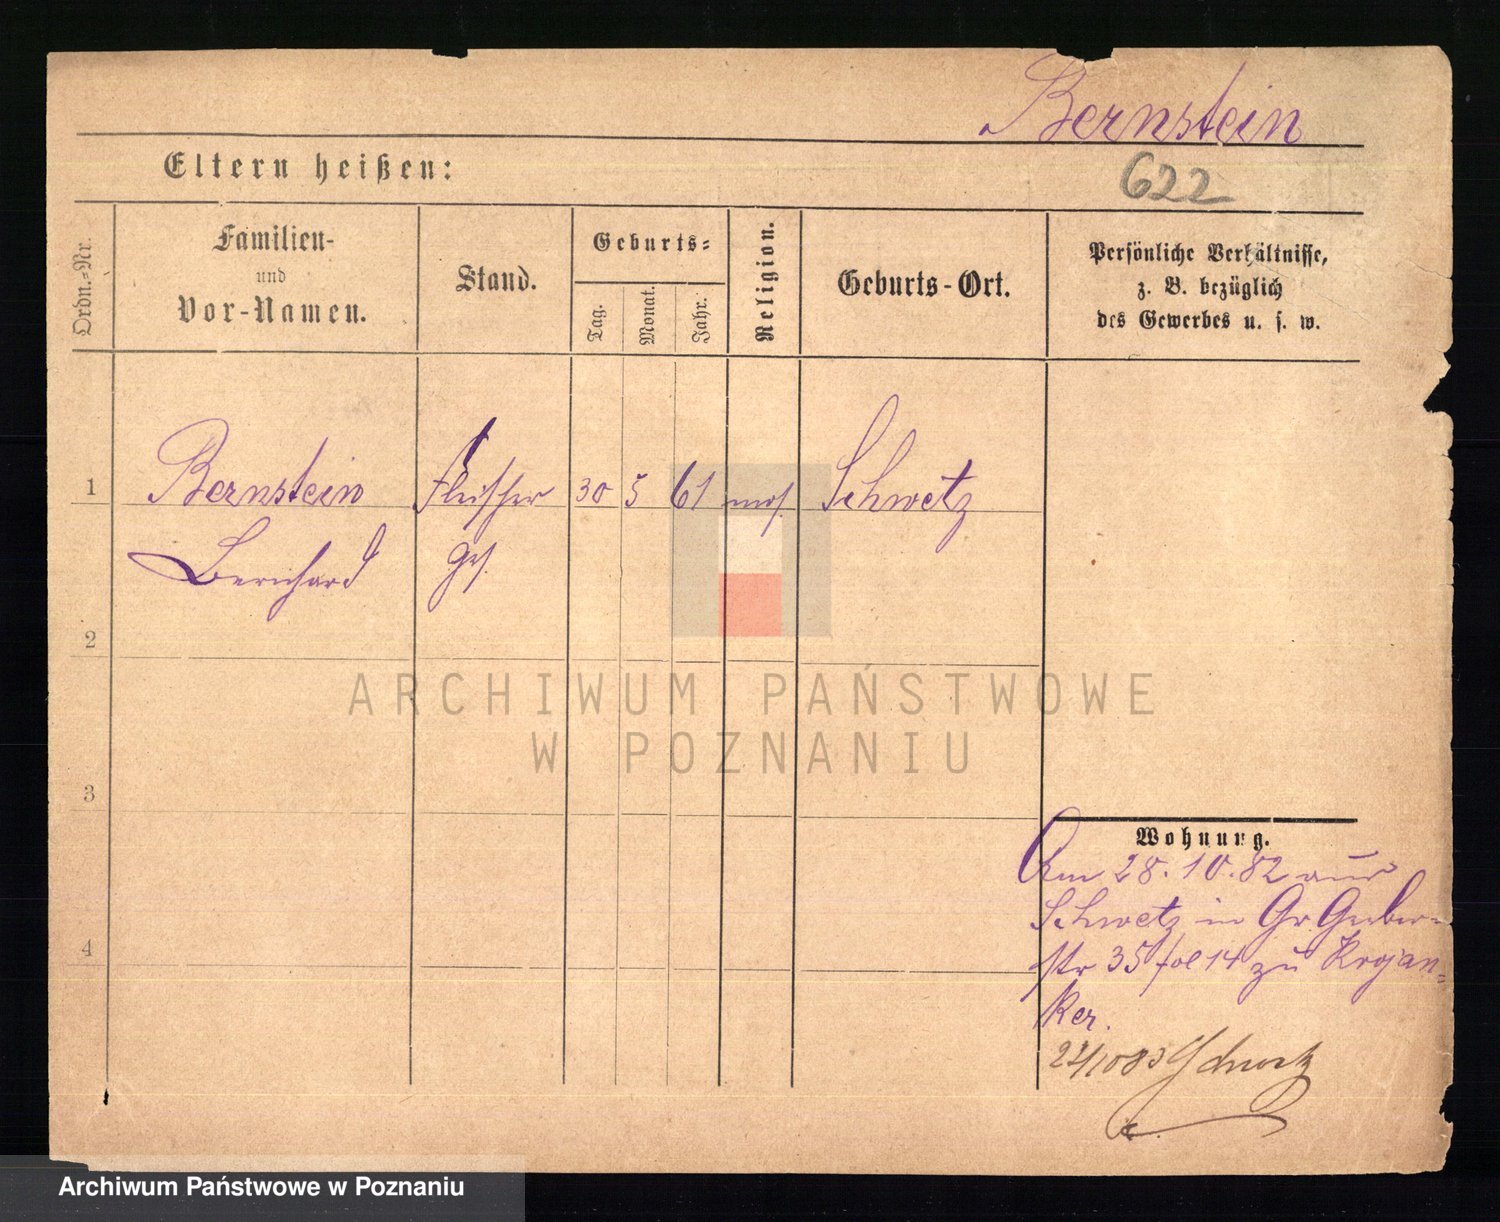 Bernstein
622
Eltern heißen:
Ordn.-Nr.
Familien-
und
Vor-Namen.
Stand.
Geburts-
Tag.
Monat.
Jahr.
Religion.
Geburts-Ort.
Persönliche Verhältnisse,
z. B. bezüglich
des Gewerbes u. s. w.
1
Bernstein Fleischer 30 5 61 mos. Schwetz
Bernhard ges.
2
3
4
Wohnung.
Am 28.10.82 aus
Schwetz in Gr. Gerber-
str 35 fol 14 zu Krojan-
ker.
Schwetz
ARCHIWUM PAŃSTWOWE
W POZNANIU
Archiwum Państwowe w Poznaniu